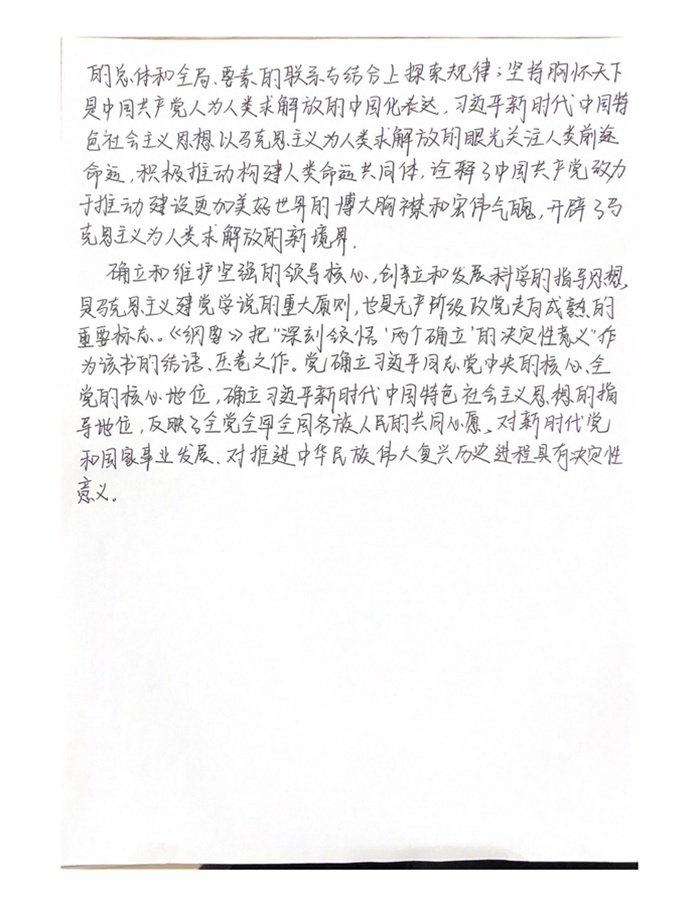 的总体和全局、要素的联系与结合上探索规律；坚持胸怀天下
是中国共产党人为人类求解放的中国化表达，习近平新时代中国特
色社会主义思想以马克思主义为人类求解放的眼光关注人类前途
命运，积极推动构建人类命运共同体，诠释了中国共产党致力
于推动建设更加美好世界的博大胸襟和宏伟气魄，开辟了马
克思主义为人类求解放的新境界.
确立和维护坚强的领导核心，创立和发展科学的指导思想
是马克思主义建党学说的重大原则，也是无产阶级政党走向成熟的
重要标志。《纲要》把“深刻领悟‘两个确立’的决定性意义”作
为该书的结语、压卷之作。党确立习近平同志党中央的核心、全
党的核心地位，确立习近平新时代中国特色社会主义思想的指
导地位，反映了全党全军全国各族人民的共同心愿、对新时代党
和国家事业发展、对推进中华民族伟大复兴历史进程具有决定性
意义。